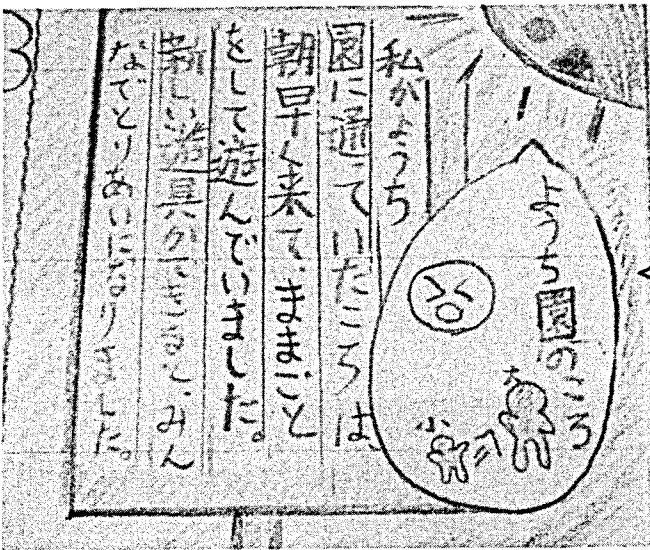 ようち園のころ
大
小
私がようち
園に通っていたころは
朝早く来て、ままごと
をして遊んでいました。
新しい遊具ができると、みん
なでとりあいになりました。